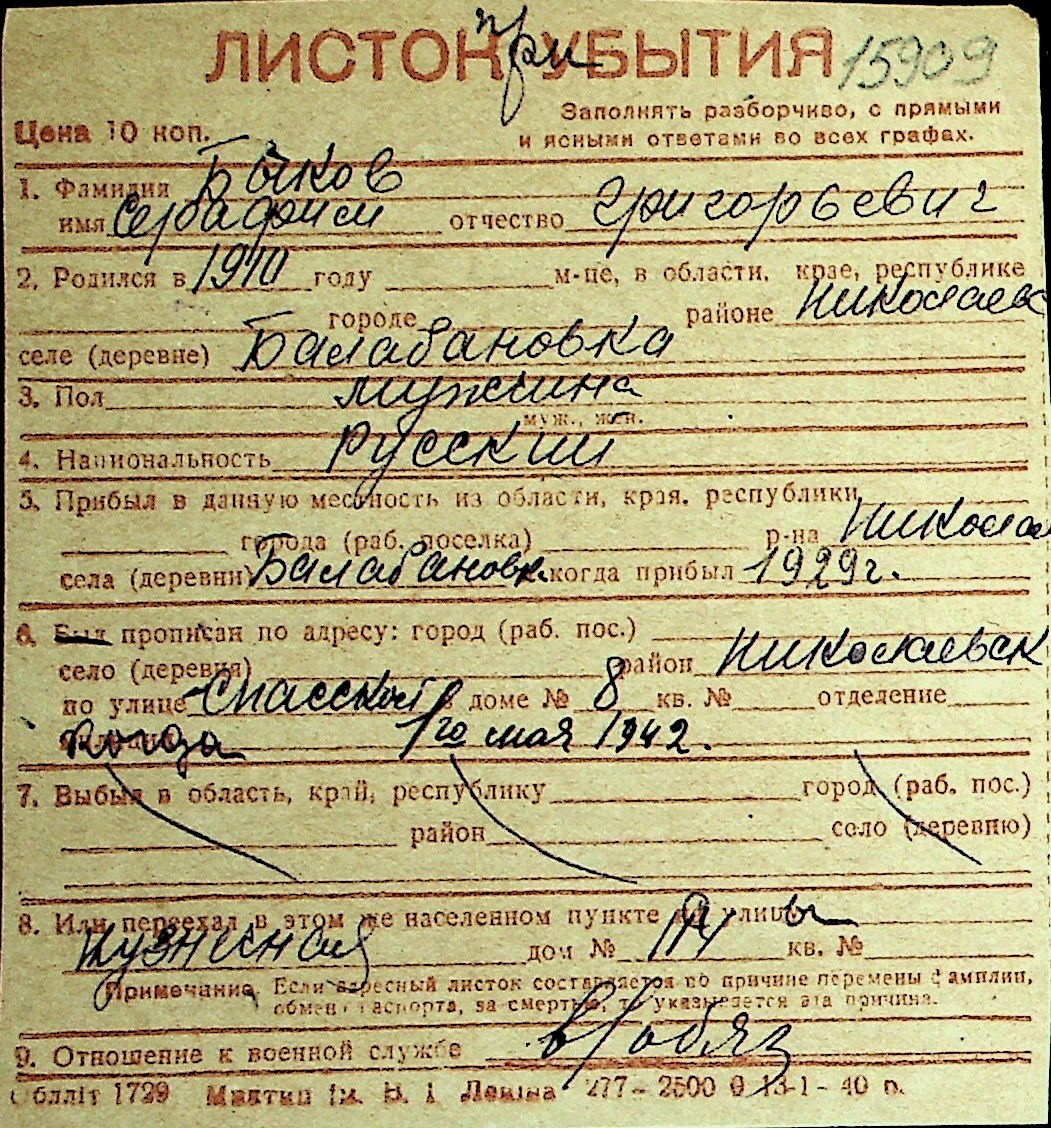 ЛИСТОК при УБЫТИЯ 15909
Заполнять разборчиво, с прямыми
Цена 10 коп. и ясными ответами во всех графах.
1. Фамилия Бычков
имя Серафим отчество Григорьевич
2. Родился в 1910 году м-це, в области, крае, республике
городе районе Николаевс
селе (деревне) Балабановка
3. Пол мужчина
муж., жен.
4. Национальность русский
5. Прибыл в данную местность из области, края, республики
города (раб. поселка) р-на Николаев
села (деревни) Балабановк. когда прибыл 1929 г.
6. Был прописан по адресу: город (раб. пос.)
село (деревня) район Николаевск
по улице Спасской в доме № 8 кв. № отделение
когда 1го мая 1942.
7. Выбыл в область, край, республику город (раб. пос.)
район село (деревню)
8. Или переехал в этом же населенном пункте улицы
Кузнечная дом № 114 кв. №
Примечание. Если адресный листок составляется по причине перемены фамилии,
обмена паспорта, за смертью, то указывается эта причина.
9. Отношение к военной службе в/обяз
Облліт 1729 Миктип ім. В. І. Леніна 277-2500 0 13-1-40 р.